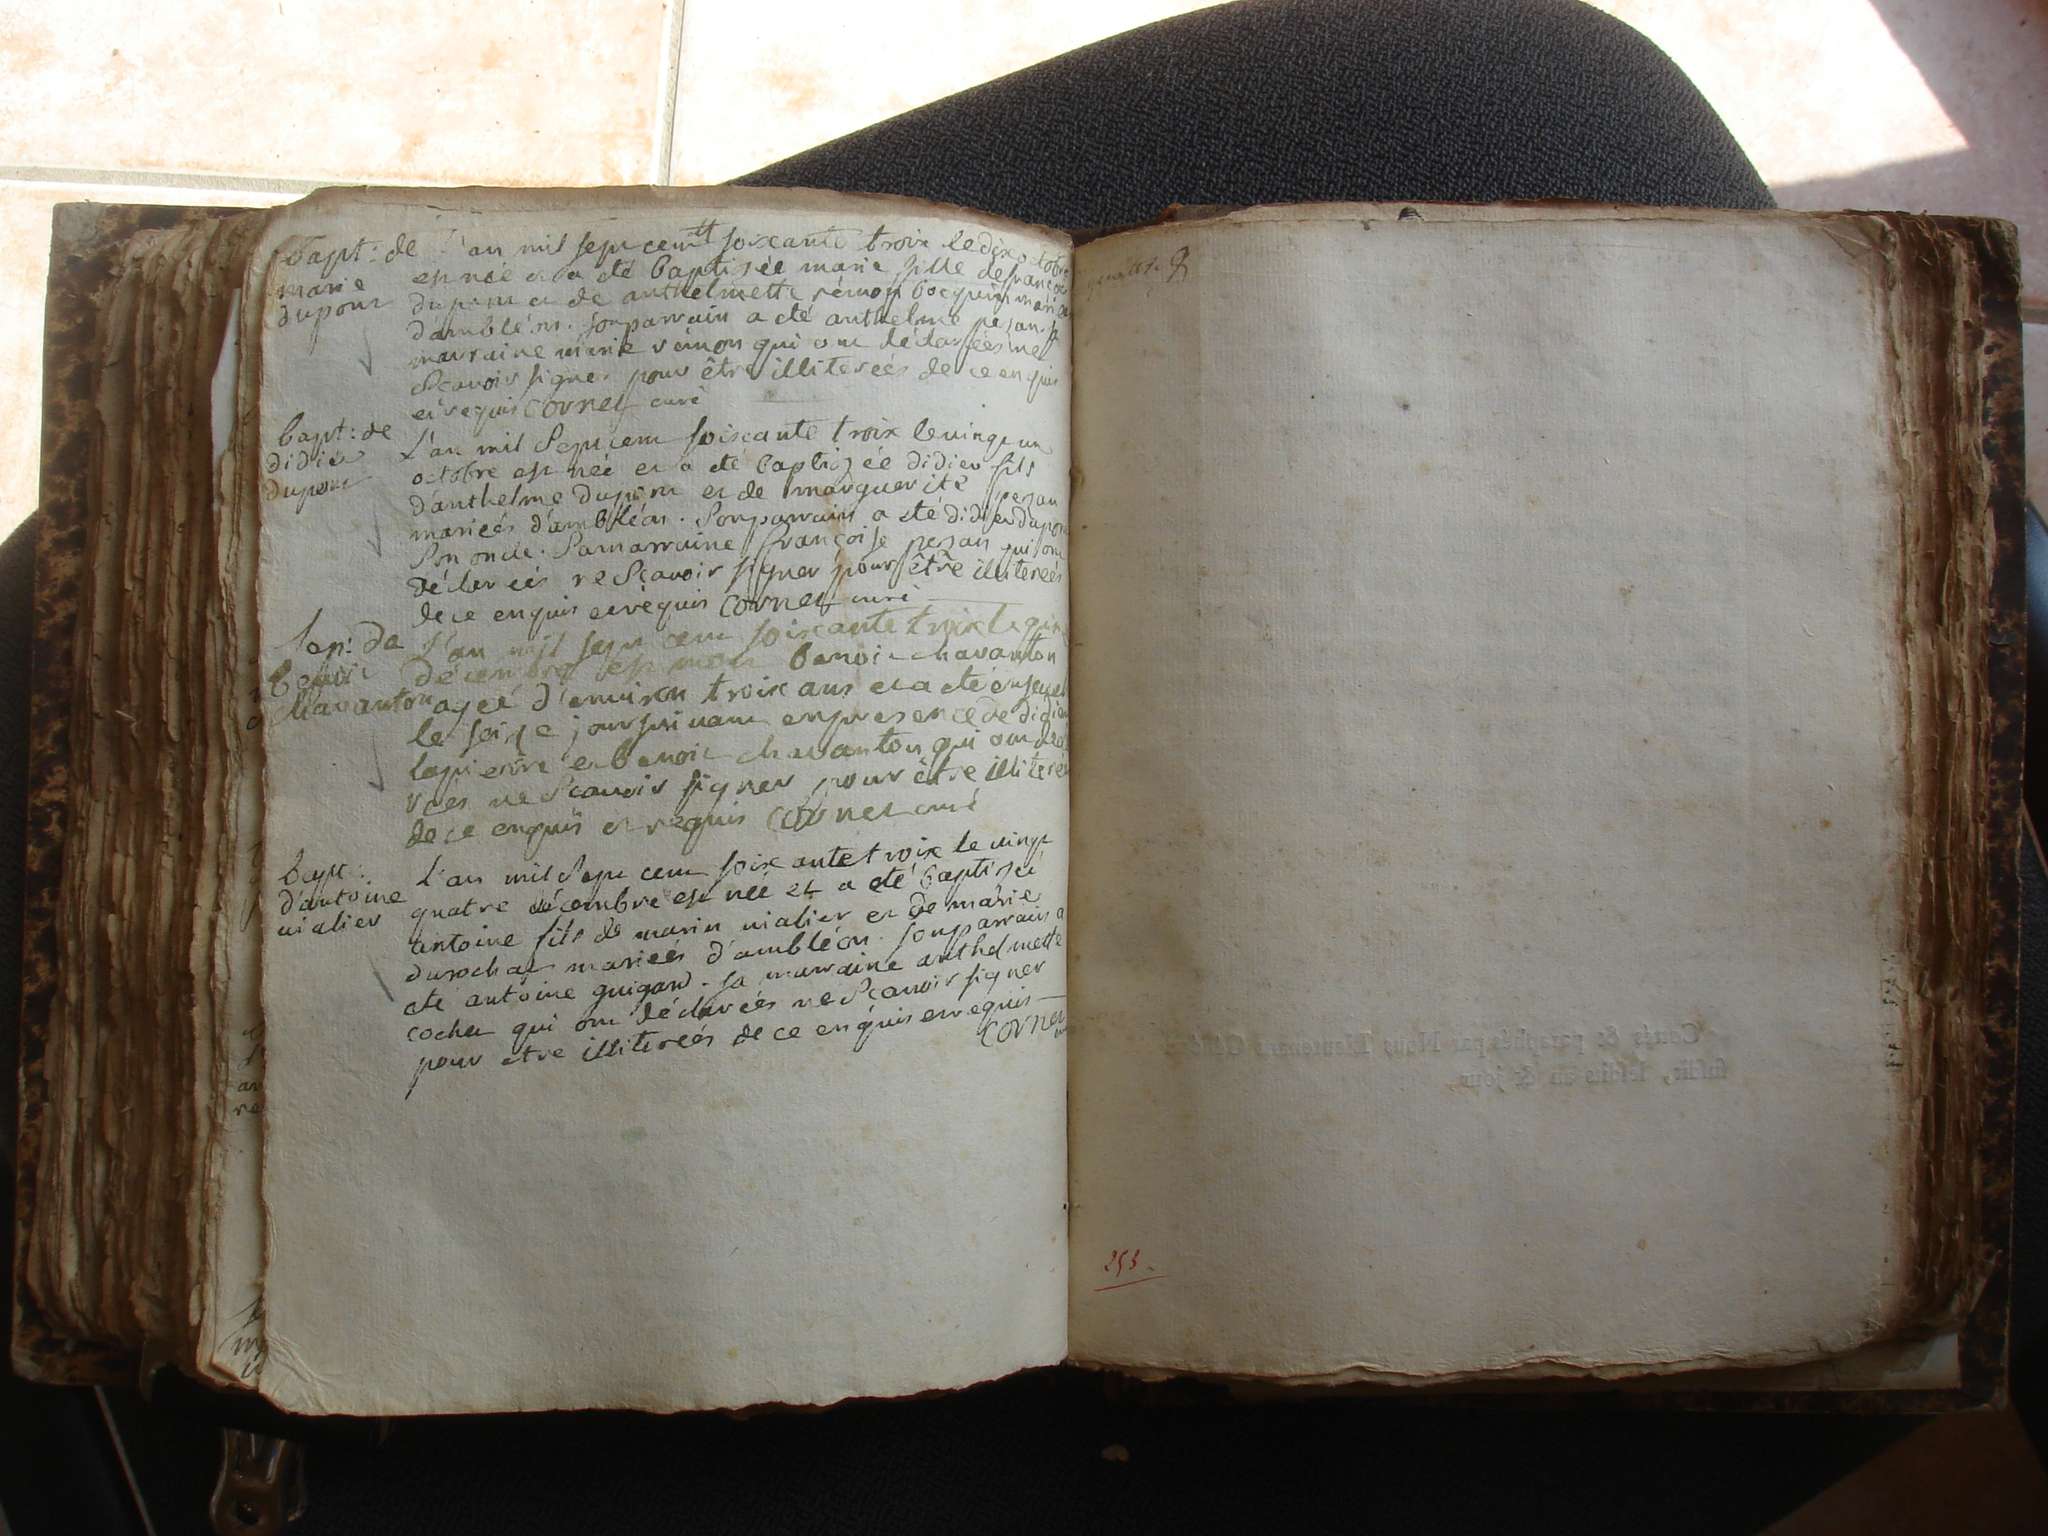 bapt: de
marie
dupont
L'an mil sept cent soixante trois le dix octobre
est née et a été baptisée marie fille de françois
dupont et de anthelmette rémon bocquin mariés
d'ambléon. son parrain a été anthelme pesan. sa
marraine marie rémon qui ont déclareés ne
Scavoir signer pour être illitereés de ce enquis
et requis Cornet curé
bapt: de
didier
dupont
L'an mil Sept cent soixante trois le vingt un
octobre est neé et a été baptiséе didier fils
d'anthelme dupont et de marguerite pesan
marieés d'ambléon. Son parrain a été didier dupont
Son oncle. Sa marraine françoise pesan qui ont
déclareés ne Sçavoir signer pour être illitereés
de ce enquis et requis Cornet curé
Sep: de
benoit
Chavanton
L'an mil sept cent soixante trois le quinze
décembre est mort benoit chavanton
ageé d'environ trois ans et a été enseveli
le seize jour suivant en presence de didier
lapierre et benoit chavanton qui ont décla
rées ne Scavoir signer pour être illitereés
de ce enquis et requis Cornet curé
bapt:
d'antoine
vialier
L'an mil Sept cent soixante trois le vingt
quatre décembre est neé et a été baptisé
antoine fils de marin vialier et de marie
durochat marieés d'ambléon. son parrain a
été antoine guigard. sa marraine anthelmette
cochet qui ont déclareés ne Scavoir signer
pour etre illitereés de ce enquis et requis
Cornet
253.
Cottés & paraphés par Nous Lieutenant
susdit, lesdits an & jour.